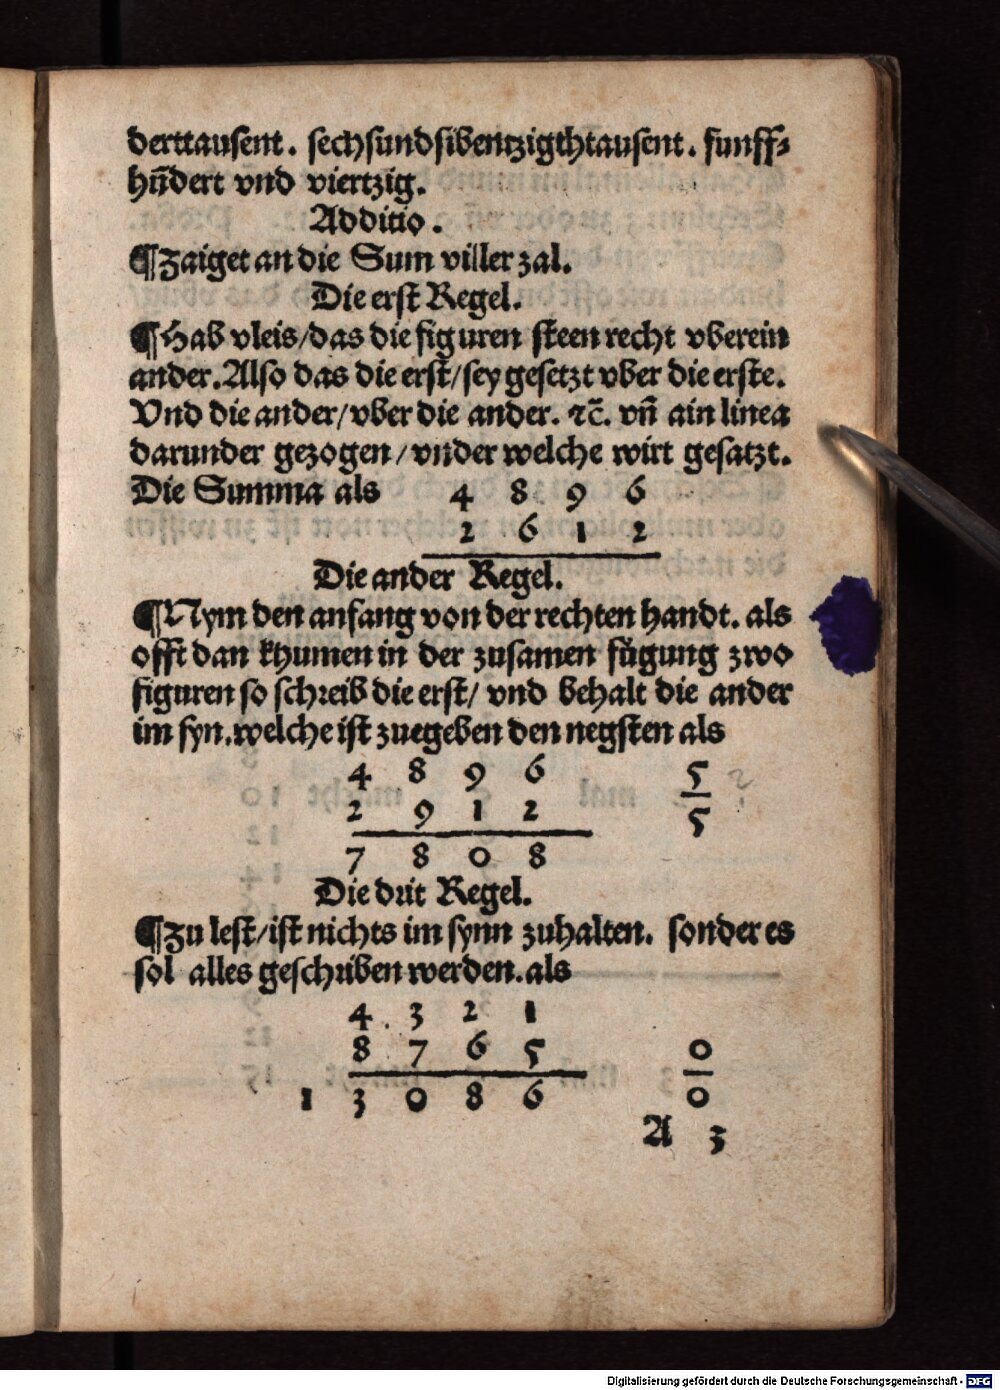 derttausent. sechsundsibentzigthtausent. funff⸗
hūdert vnd viertzig.
Additio.
¶Zaiget an die Sum viller zal.
Die erst Regel.
¶Hab vleis/das die figuren steen recht vberein
ander. Also das die erst/sey gesetzt vber die erste.
Vnd die ander/vber die ander. ⁊c̄. vn̄ ain linea
darunder gezogen/vnder welche wirt gesatzt.
Die Summa als 4 8 9 6
2 6 1 2
Die ander Regel.
¶Nym den anfang von der rechten handt. als
offt dan khumen in der zusamen fůgung zwo
figuren so schreib die erst/ vnd behalt die ander
im syn. welche ist zuegeben den negsten als
4 8 9 6 5
2 9 1 2 5
7 8 0 8
Die drit Regel.
¶Zu lest/ist nichts im synn zuhalten. sonder es
sol alles geschriben werden. als
4 3 2 1
8 7 6 5 0
1 3 0 8 6 0
A 3
Digitalisierung gefördert durch die Deutsche Forschungsgemeinschaft - DFG